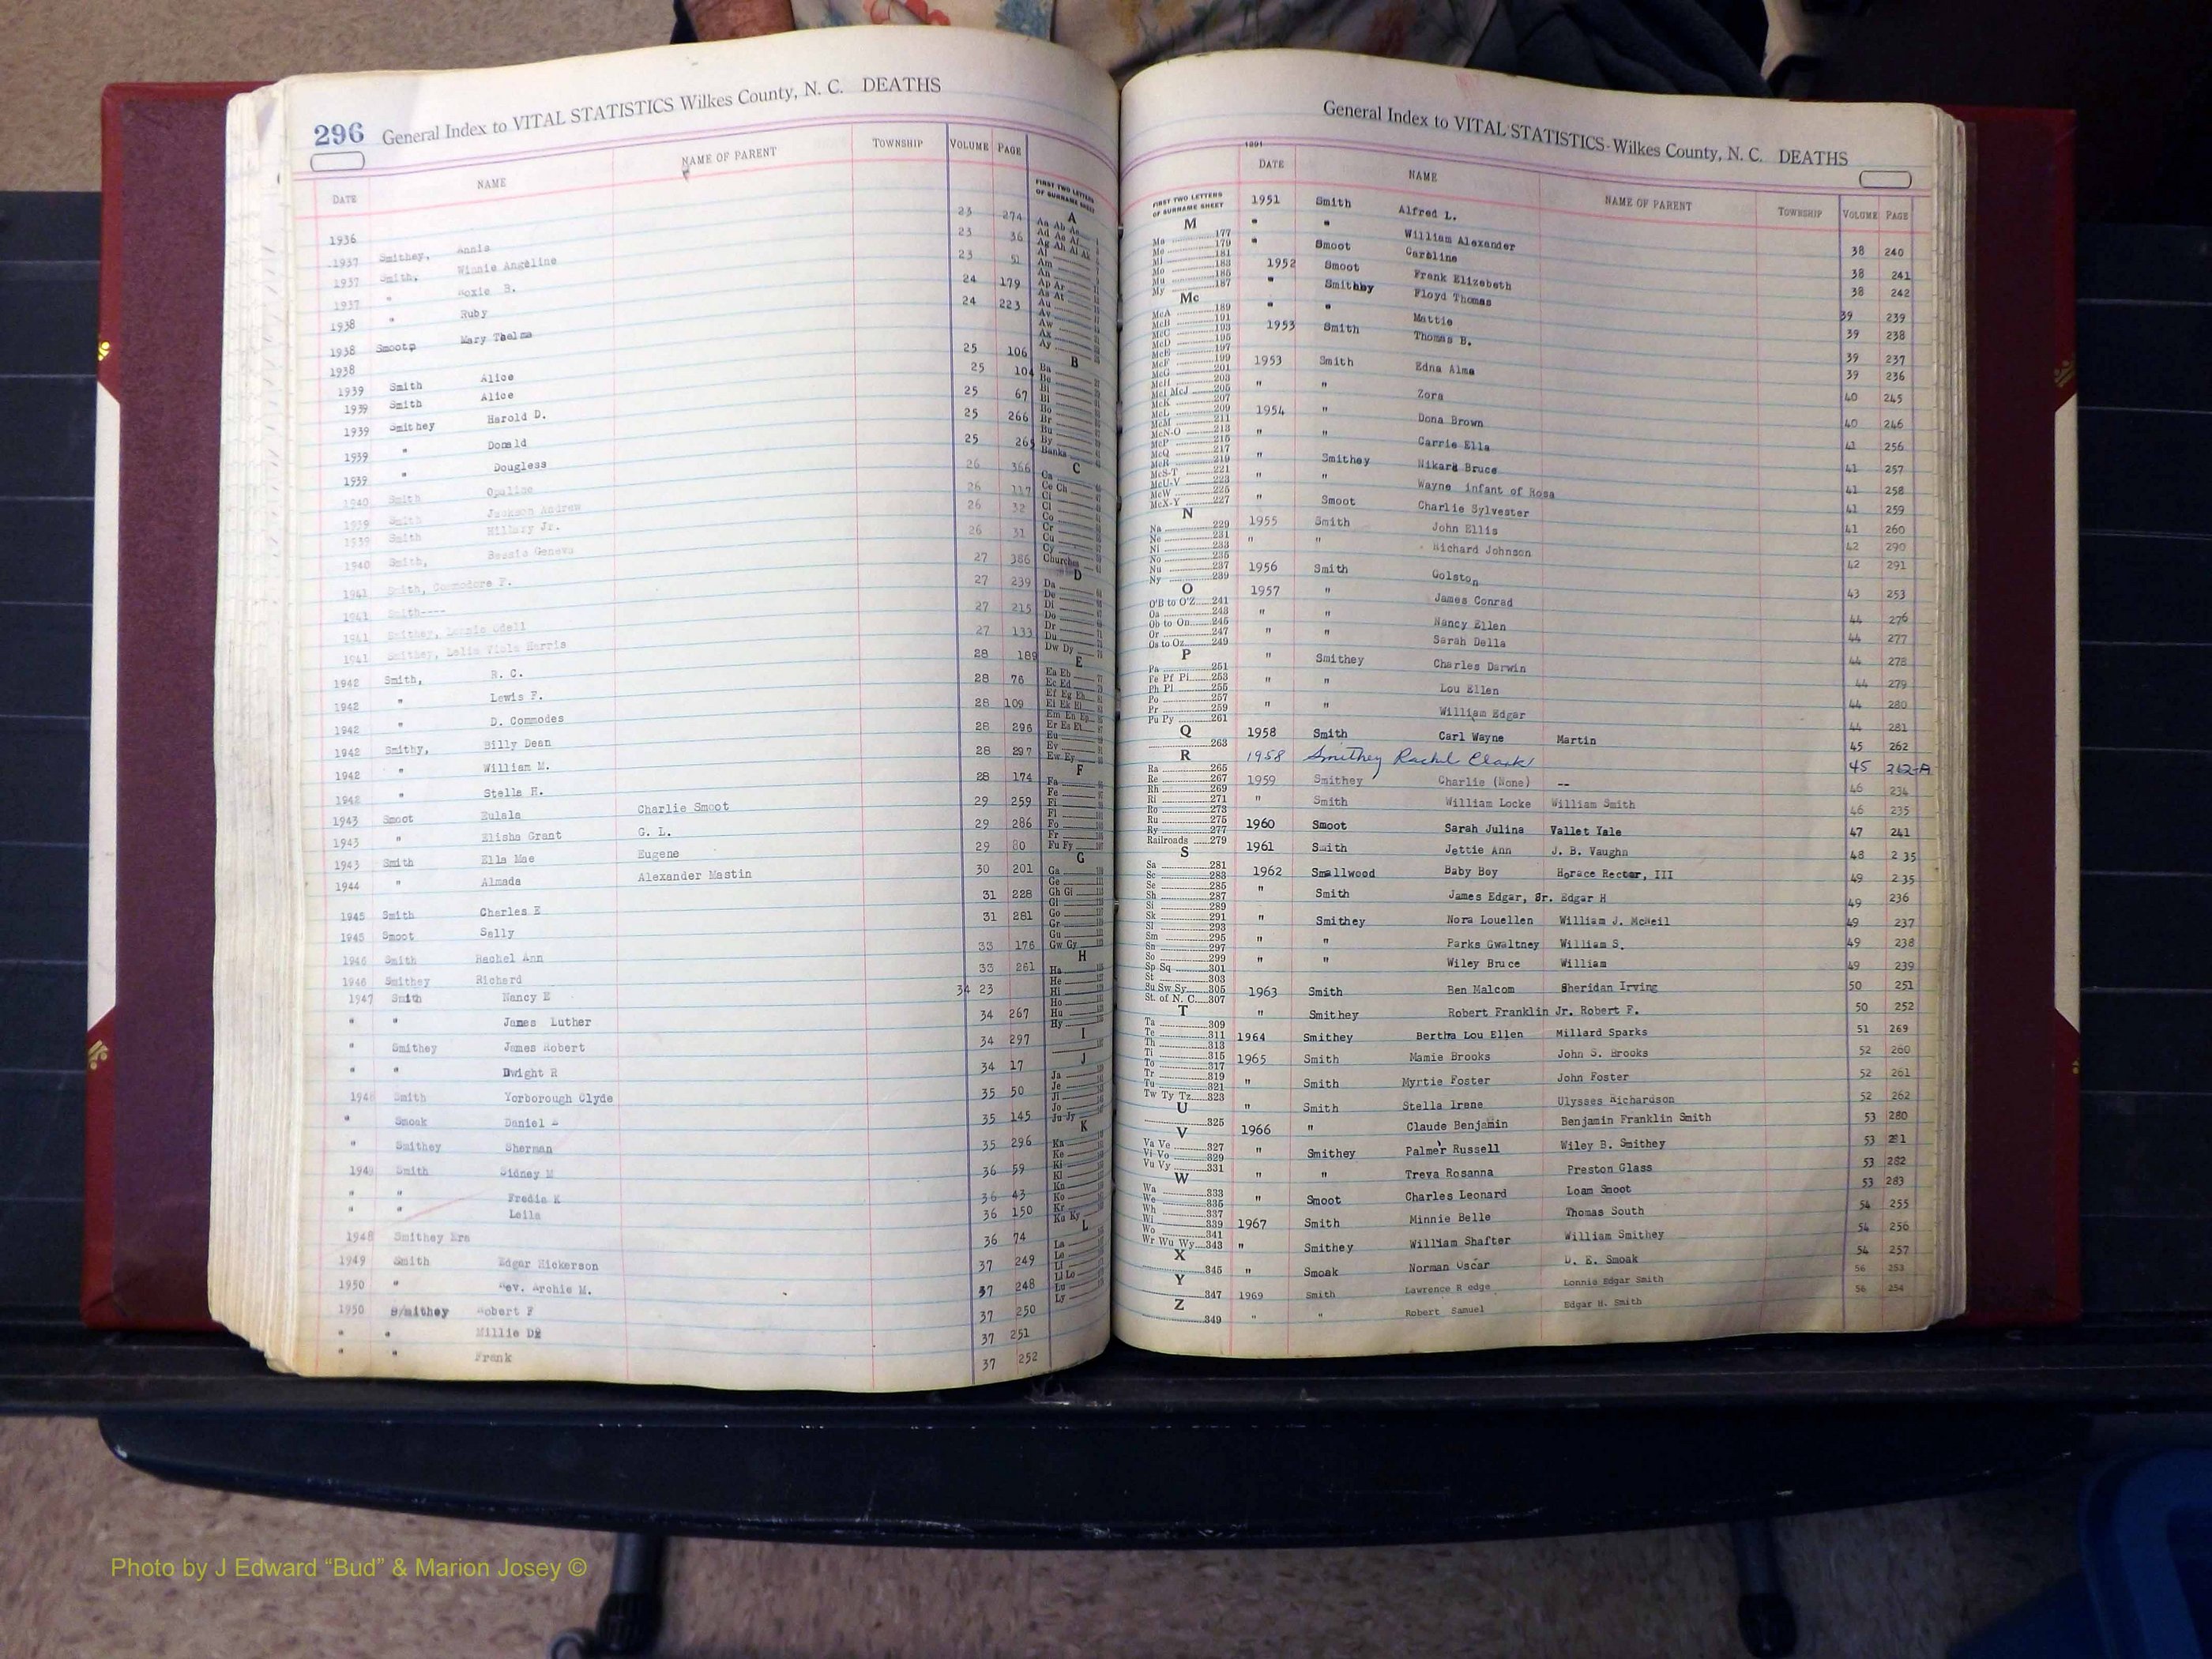 296 General Index to VITAL STATISTICS Wilkes County, N. C. DEATHS
DATE NAME NAME OF PARENT TOWNSHIP VOLUME PAGE
1936 Smithey, Annie 23 274
1937 Smith, Winnie Angeline 23 36
1937 " Roxie B. 23 51
1938 " Ruby 24 179
1938 Smootp Mary Thelma 24 223
1938 Smith Alice 25 106
1939 Smith Alice 25 104
1939 Smithey Harold D. 25 67
1939 " Donald 25 266
1939 " Dougless 25 265
1940 Smith Opaline 26 366
1939 Smith Jackson Andrew 26 117
1939 Smith Hillary Jr. 26 32
1940 Smith, Bessie Geneva 26 31
1941 Smith, Commodore P. 27 386
1941 Smith---- 27 239
1941 Smithey, Odell 27 215
1941 Smithey, Lelia Viola Harris 27 133
1942 Smith, R. C. 28 189
1942 " Lewis F. 28 76
1942 " D. Commodes 28 109
1942 Smithy, Billy Dean 28 296
1942 " William M. 28 297
1942 " Stella H. 28 174
1943 Smoot Eulala Charlie Smoot 29 259
1943 " Elisha Grant G. L. 29 286
1943 Smith Ella Mae Eugene 29 80
1944 " Almada Alexander Mastin 30 201
1945 Smith Charles E 31 228
1945 Smoot Sally 31 281
1946 Smith Rachel Ann 33 176
1946 Smithey Richard 33 261
1947 Smith Nancy E 34 23
" " James Luther 34 267
" Smithey James Robert 34 297
" " Dwight R 34 17
194 Smith Yorborough Clyde 35 50
" Smoak Daniel 35 145
" Smithey Sherman 35 296
194 Smith Sidney M 36 59
" " Fredie K 36 43
" " Leila 36 150
1948 Smithey Era 36 74
1949 Smith Edgar Hickerson 37 249
1950 " Rev. Archie M. 37 248
1950 Smithey Robert F 37 250
" " Millie 37 251
" " Frank 37 252
FIRST TWO LETTERS
OF SURNAME SHEET
A
Am
An
Ap Ar
As At
Au
Av
Aw
Ax
Ay
B
Ba
Be
Bi
Bl
Bo
Br
Bu
By
Banks
C
Ca
Ce Ch
Ci
Cl
Co
Cr
Cu
Cy
Churches
D
Da
De
Di
Do
Dr
Du
Dw Dy
E
Ea Eb
Ec Ed
Ef Eg Eh
Ei Ek El
Em En Ep
Er Es Et
Eu
Ev
Ew Ey
F
Fa
Fe
Fi
Fl
Fo
Fr
Fu Fy
G
Ga
Ge
Gh Gi
Gl
Go
Gr
Gu
Gw Gy
H
Ha
He
Hi
Ho
Hu
Hy
I
J
Ja
Je
Ji
Jo
Ju Jy
K
Ka
Ke
Ki
Kl
Kn
Ko
Kr
Ku Ky
L
La
Le
Li
Ll Lo
Lu
Ly
General Index to VITAL STATISTICS-Wilkes County, N. C. DEATHS
DATE NAME NAME OF PARENT TOWNSHIP VOLUME PAGE
FIRST TWO LETTERS
OF SURNAME SHEET
M
Ma 177
Me 179
Mi 181
Mo 183
Mu 185
My 187
Mc
McA 189
McB 191
McC 193
McD 195
McE 197
McF 199
McG 201
McH 203
McI McJ 205
McK 207
McL 209
McM 211
McN-O 213
McP 215
McQ 217
McR 219
McS-T 221
McU-V 223
McW 225
McX-Y 227
N
Na 229
Ne 231
Ni 233
No 235
Nu 237
Ny 239
O
O'B to O'Z 241
Oa 243
Ob to On 245
Or 247
Os to Oz 249
P
Pa 251
Pe Pf Pi 253
Ph Pl 255
Po 257
Pr 259
Pu Py 261
Q
263
R
Ra 265
Re 267
Rh 269
Ri 271
Ro 273
Ru 275
Ry 277
Railroads 279
S
Sa 281
Sc 283
Se 285
Sh 287
Si 289
Sk 291
Sl 293
Sm 295
Sn 297
So 299
Sp Sq 301
St 303
Su Sw Sy 305
St. of N. C. 307
T
Ta 309
Te 311
Th 313
Ti 315
To 317
Tr 319
Tu 321
Tw Ty Tz 323
U
325
V
Va Ve 327
Vi Vo 329
Vu Vy 331
W
Wa 333
We 335
Wh 337
Wi 339
Wo 341
Wr Wu Wy 343
X
345
Y
347
Z
349
1951 Smith Alfred L. 38 240
" " William Alexander 38 241
" Smoot Caroline 38 242
1952 Smoot Frank Elizebeth 39 239
" Smithey Floyd Thomas 39 238
" " Mattie 39 237
1953 Smith Thomas B. 39 236
1953 Smith Edna Alma 40 245
" " Zora 40 246
1954 " Dona Brown 41 256
" " Carrie Ella 41 257
" Smithey Nikara Bruce 41 258
" " Wayne infant of Rosa 41 259
" Smoot Charlie Sylvester 41 260
1955 Smith John Ellis 42 290
" " Richard Johnson 42 291
1956 Smith Golston 43 253
1957 " James Conrad 44 276
" " Nancy Ellen 44 277
" " Sarah Della 44 278
" Smithey Charles Darwin 44 279
" " Lou Ellen 44 280
" " William Edgar 44 281
1958 Smith Carl Wayne Martin 45 262
1958 Smithey Rachel Clark 45 262-A
1959 Smithey Charlie (None) -- 46 234
" Smith William Locke William Smith 46 235
1960 Smoot Sarah Julina Vallet Yale 47 241
1961 Smith Jettie Ann J. B. Vaughn 48 235
1962 Smallwood Baby Boy Horace Rector, III 49 235
" Smith James Edgar, Sr. Edgar H 49 236
" Smithey Nora Louellen William J. McNeil 49 237
" " Parks Gwaltney William S. 49 238
" " Wiley Bruce William 49 239
1963 Smith Ben Malcom Sheridan Irving 50 251
" Smithey Robert Franklin Jr. Robert F. 50 252
1964 Smithey Bertha Lou Ellen Millard Sparks 51 269
1965 Smith Mamie Brooks John S. Brooks 52 260
" Smith Myrtie Foster John Foster 52 261
" Smith Stella Irene Ulysses Richardson 52 262
1966 " Claude Benjamin Benjamin Franklin Smith 53 280
" Smithey Palmer Russell Wiley B. Smithey 53 281
" " Treva Rosanna Preston Glass 53 282
" Smoot Charles Leonard Loam Smoot 53 283
1967 Smith Minnie Belle Thomas South 54 255
" Smithey William Shafter William Smithey 54 256
" Smoak Norman Oscar D. E. Smoak 54 257
1969 Smith Lawrence R edge Lonnie Edgar Smith 56 253
" " Robert Samuel Edgar H. Smith 56 254
Photo by J Edward “Bud” & Marion Josey ©